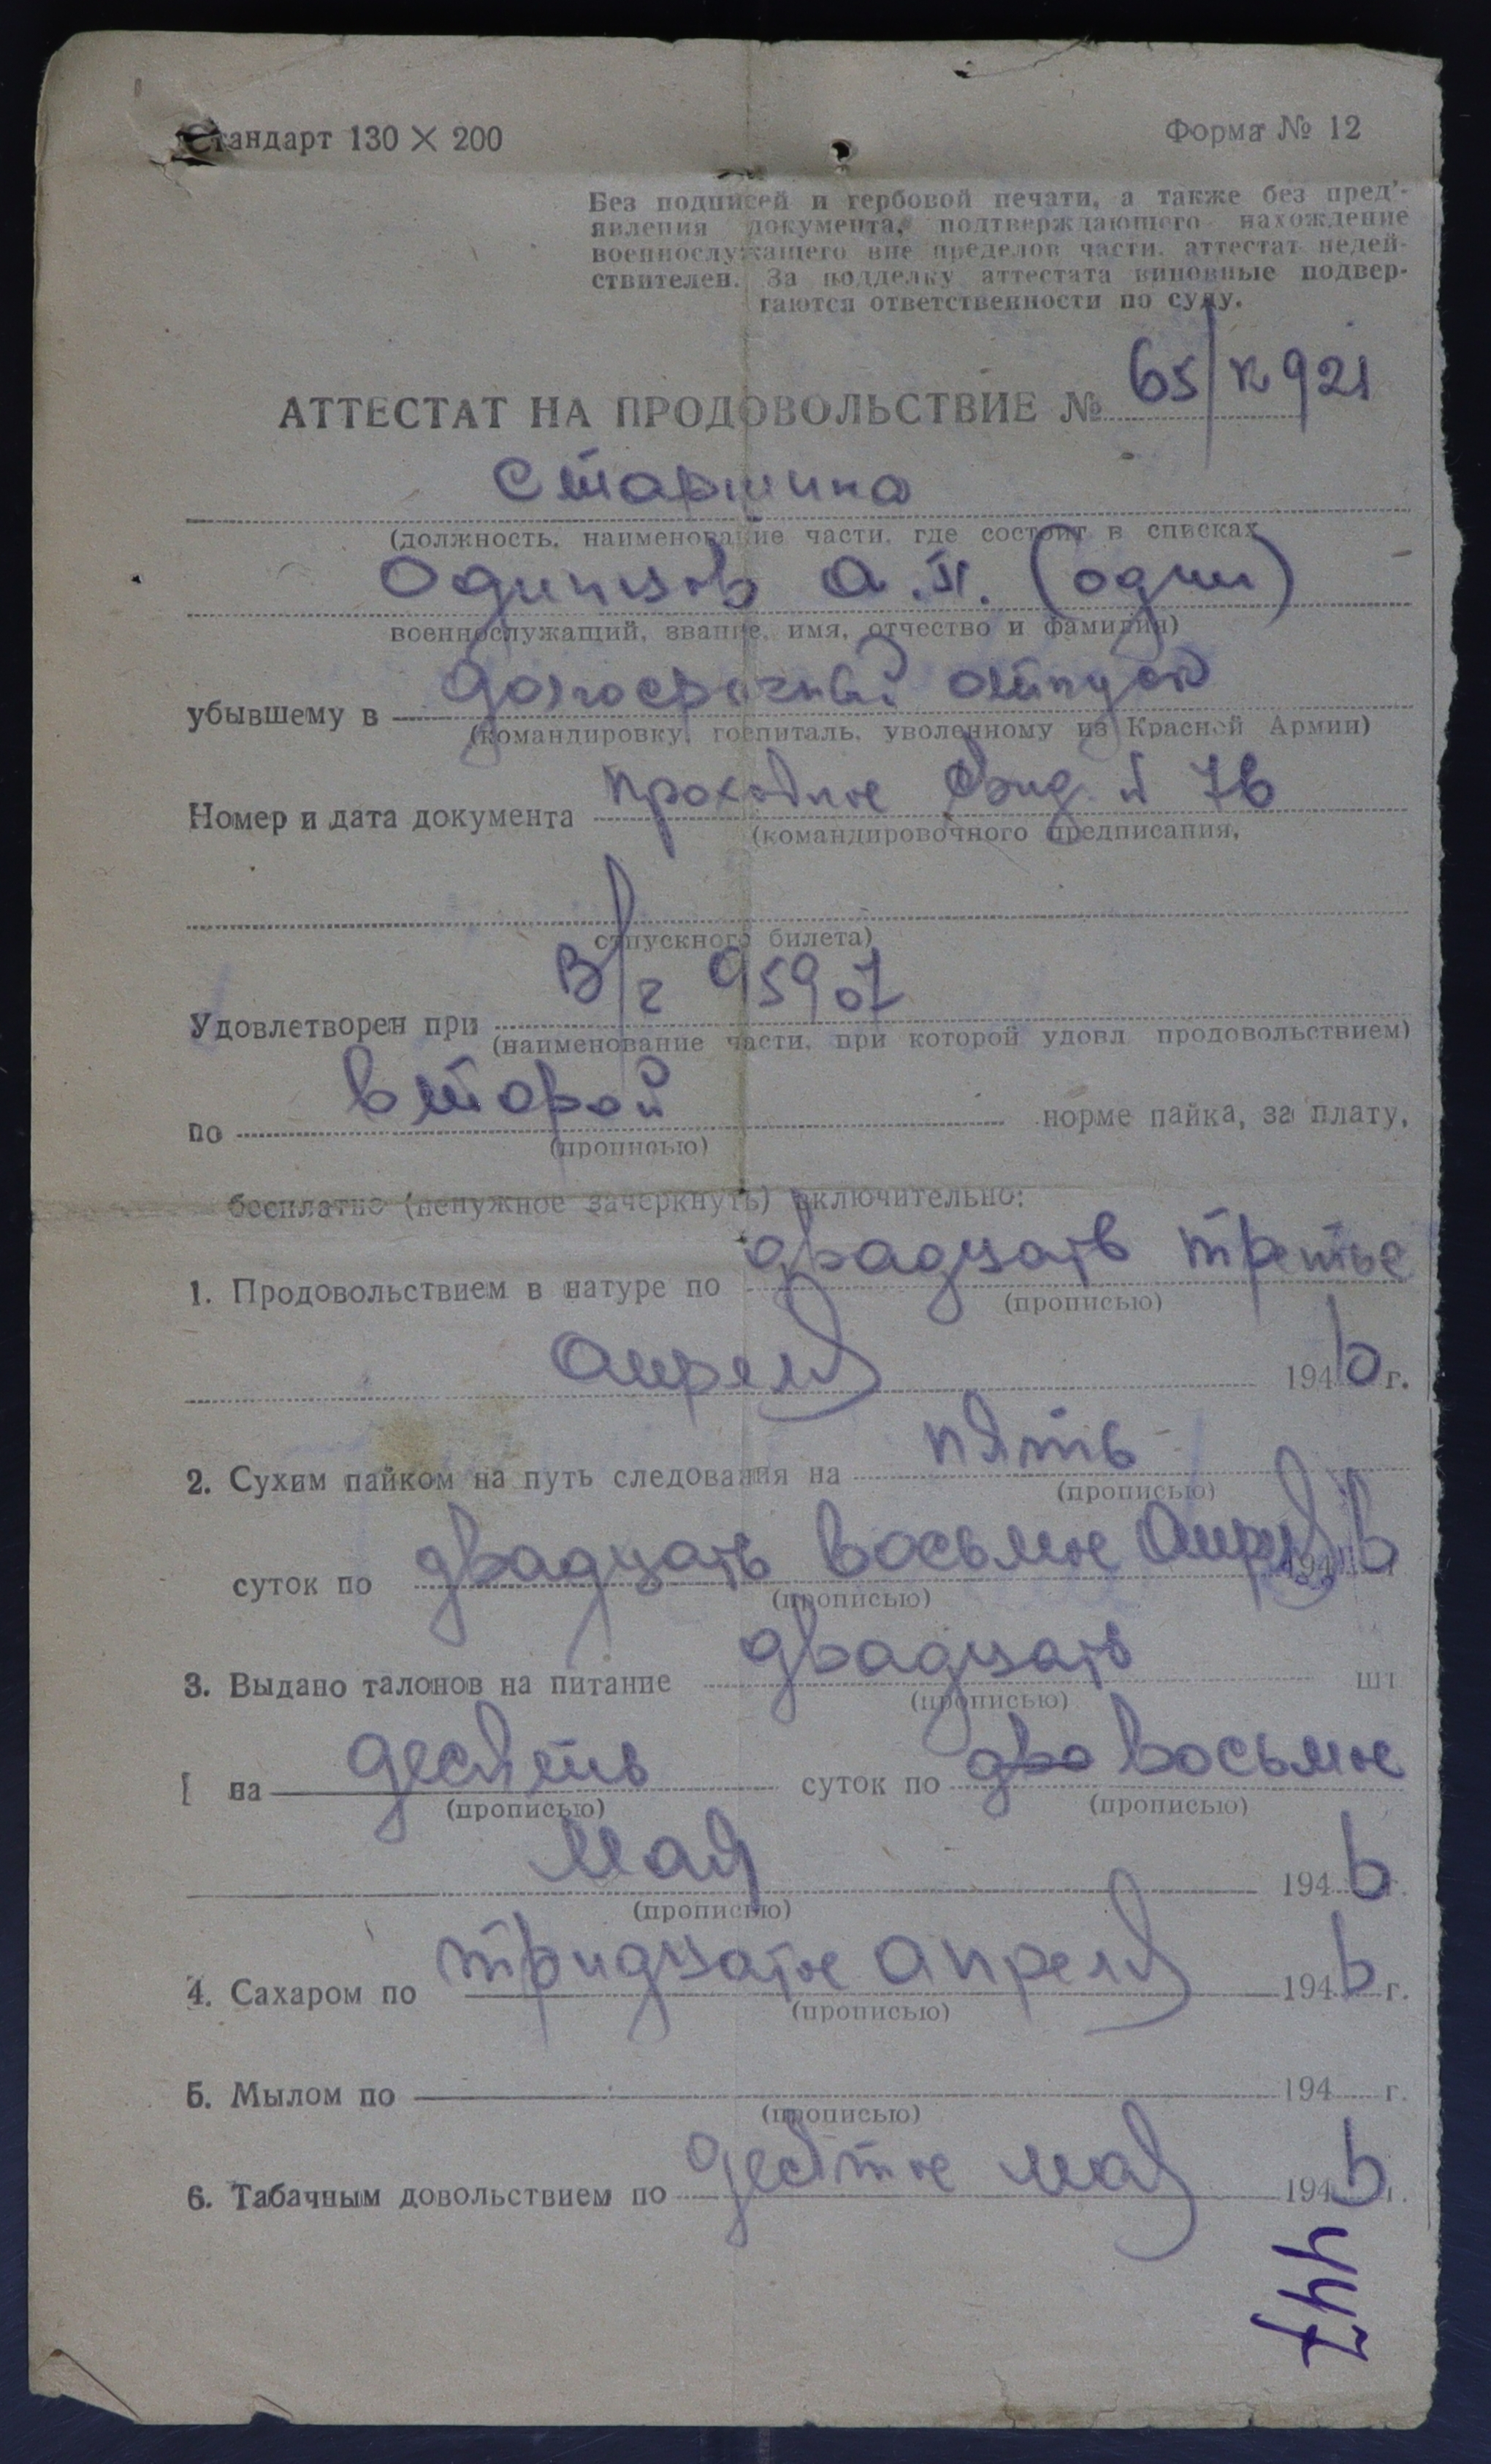 Стандарт 130 × 200
Форма № 12
Без подписей и гербовой печати, а также без пред'-
явления документа, подтверждающего нахождение
военнослужащего вне пределов части, аттестат недей-
ствителен. За подделку аттестата виновные подвер-
гаются ответственности по суду.
АТТЕСТАТ НА ПРОДОВОЛЬСТВИЕ № 65/к921
Старшина
(должность, наименование части, где состоит в списках
Одинцов А.П. (один)
военнослужащий, звание, имя, отчество и фамилия)
убывшему в долгосрочный отпуск
(командировку, госпиталь, уволенному из Красной Армии)
Номер и дата документа проходное свид. № 76
(командировочного предписания,
отпускного билета)
Удовлетворен при в/ч 95907
(наименование части, при которой удовл продовольствием)
по второй норме пайка, за плату,
(прописью)
бесплатно (ненужное зачеркнуть) включительно:
1. Продовольствием в натуре по двадцать третье
(прописью)
Апреля 1946 г.
2. Сухим пайком на путь следования на пять
(прописью)
суток по двадцать восьмое Апреля 1946
(прописью)
3. Выдано талонов на питание двадцать шт
(прописью)
на десять суток по два восьмое
(прописью) (прописью)
Мая 1946 г.
(прописью)
4. Сахаром по тридцатое апреля 1946 г.
(прописью)
5. Мылом по 194 г.
(прописью)
6. Табачным довольствием по десятое мая 1946 г.
447